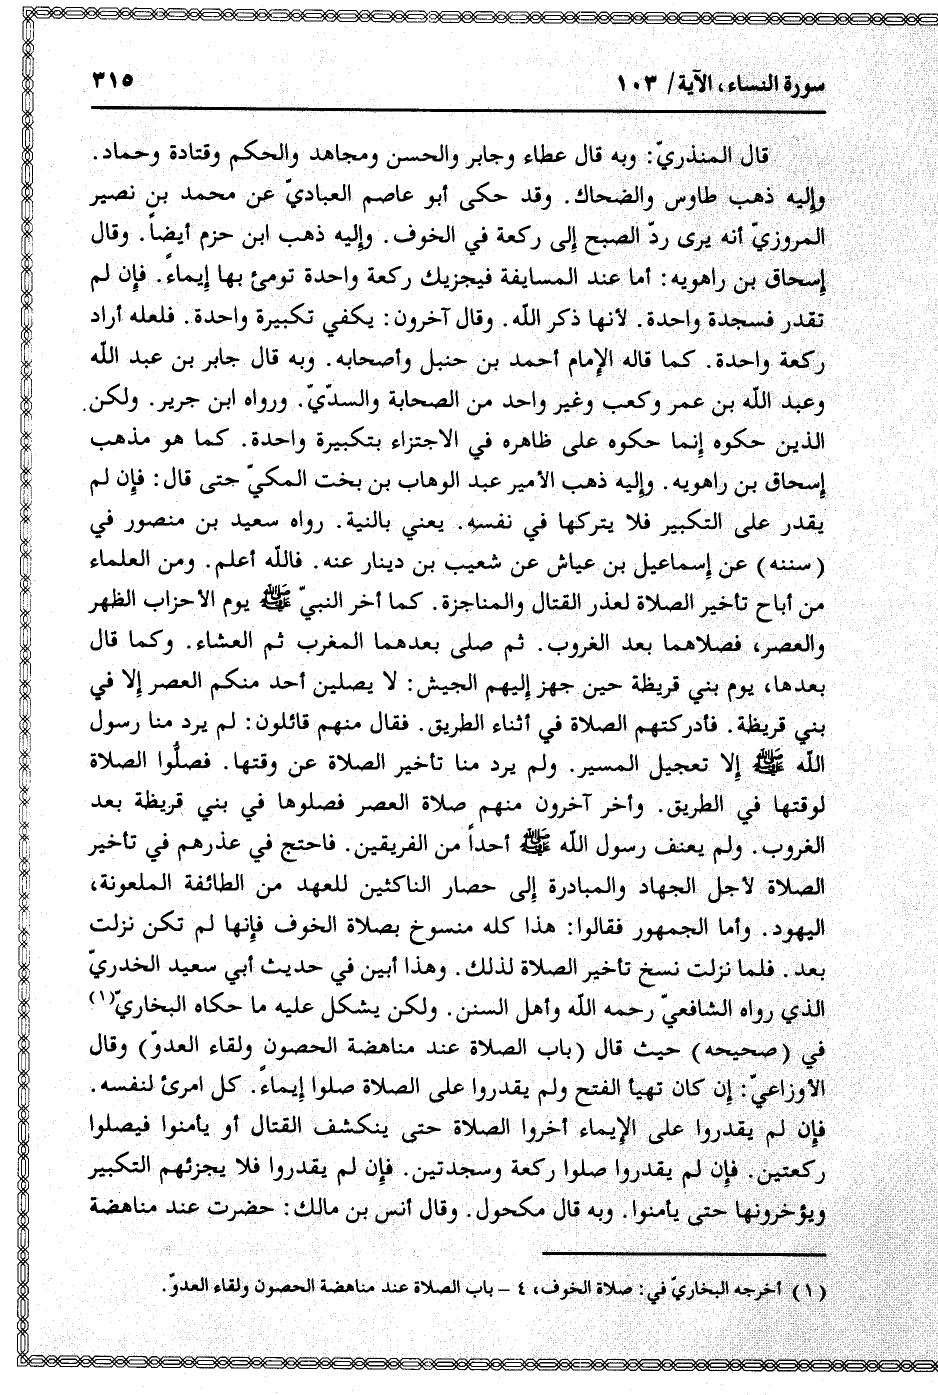 سورة النساء، الآية/ ١٠٣
٣١٥
قال المنذريّ: وبه قال عطاء وجابر والحسن ومجاهد والحكم وقتادة وحماد.
وإليه ذهب طاوس والضحاك. وقد حكى أبو عاصم العباديّ عن محمد بن نصير
المروزيّ أنه يرى ردّ الصبح إلى ركعة في الخوف. وإليه ذهب ابن حزم أيضاً. وقال
إسحاق بن راهويه: أما عند المسايفة فيجزيك ركعة واحدة تومئ بها إيماءً. فإن لم
تقدر فسجدة واحدة. لأنها ذكر اللّه. وقال آخرون: يكفي تكبيرة واحدة. فلعله أراد
ركعة واحدة. كما قاله الإمام أحمد بن حنبل وأصحابه. وبه قال جابر بن عبد اللّه
وعبد اللّه بن عمر وكعب وغير واحد من الصحابة والسدّيّ. ورواه ابن جرير. ولكن
الذين حكوه إنما حكوه على ظاهره في الاجتزاء بتكبيرة واحدة. كما هو مذهب
إسحاق بن راهويه. وإليه ذهب الأمير عبد الوهاب بن بخت المكيّ حتى قال: فإن لم
يقدر على التكبير فلا يتركها في نفسه. يعني بالنية. رواه سعيد بن منصور في
(سننه) عن إسماعيل بن عياش عن شعيب بن دينار عنه. فاللّه أعلم. ومن العلماء
من أباح تأخير الصلاة لعذر القتال والمناجزة. كما أخر النبيّ ﷺ يوم الأحزاب الظهر
والعصر، فصلاهما بعد الغروب. ثم صلى بعدهما المغرب ثم العشاء. وكما قال
بعدها، يوم بني قريظة حين جهز إليهم الجيش: لا يصلين أحد منكم العصر إلا في
بني قريظة. فأدركتهم الصلاة في أثناء الطريق. فقال منهم قائلون: لم يرد منا رسول
اللّه ﷺ إلا تعجيل المسير. ولم يرد منا تأخير الصلاة عن وقتها. فصلُّوا الصلاة
لوقتها في الطريق. وأخر آخرون منهم صلاة العصر فصلوها في بني قريظة بعد
الغروب. ولم يعنف رسول اللّه ﷺ أحداً من الفريقين. فاحتج في عذرهم في تأخير
الصلاة لأجل الجهاد والمبادرة إلى حصار الناكثين للعهد من الطائفة الملعونة،
اليهود. وأما الجمهور فقالوا: هذا كله منسوخ بصلاة الخوف فإنها لم تكن نزلت
بعد. فلما نزلت نسخ تأخير الصلاة لذلك. وهذا أبين في حديث أبي سعيد الخدريّ
الذي رواه الشافعيّ رحمه اللّه وأهل السنن. ولكن يشكل عليه ما حكاه البخاريّ(١)
في (صحيحه) حيث قال (باب الصلاة عند مناهضة الحصون ولقاء العدوّ) وقال
الأوزاعيّ: إن كان تهيأ الفتح ولم يقدروا على الصلاة صلوا إيماءً. كل امرئ لنفسه.
فإن لم يقدروا على الإيماء أخروا الصلاة حتى ينكشف القتال أو يأمنوا فيصلوا
ركعتين. فإن لم يقدروا صلوا ركعة وسجدتين. فإن لم يقدروا فلا يجزئهم التكبير
ويؤخرونها حتى يأمنوا. وبه قال مكحول. وقال أنس بن مالك: حضرت عند مناهضة
(١) أخرجه البخاريّ في: صلاة الخوف، ٤ – باب الصلاة عند مناهضة الحصون ولقاء العدوّ.